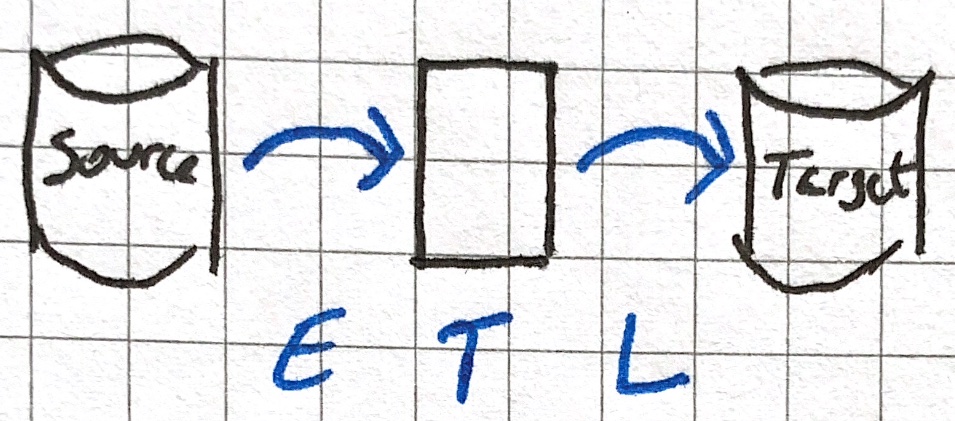 Source
Target
E T L